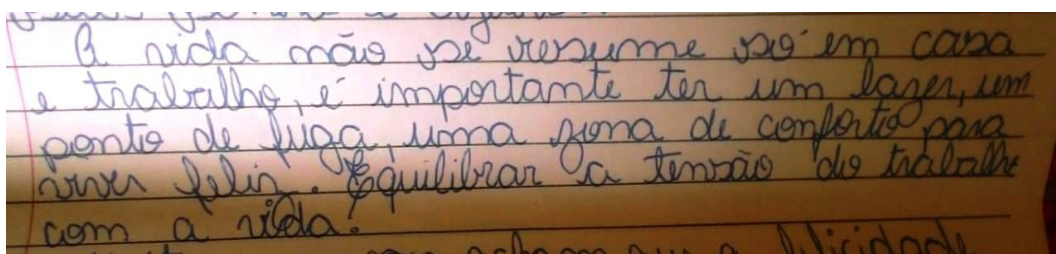 A vida não se resume só em casa
e trabalho, é importante ter um lazer, um
ponto de fuga, uma zona de conforto para
viver feliz. Equilibrar a tensão do trabalho
com a vida.
acham que a felicidade